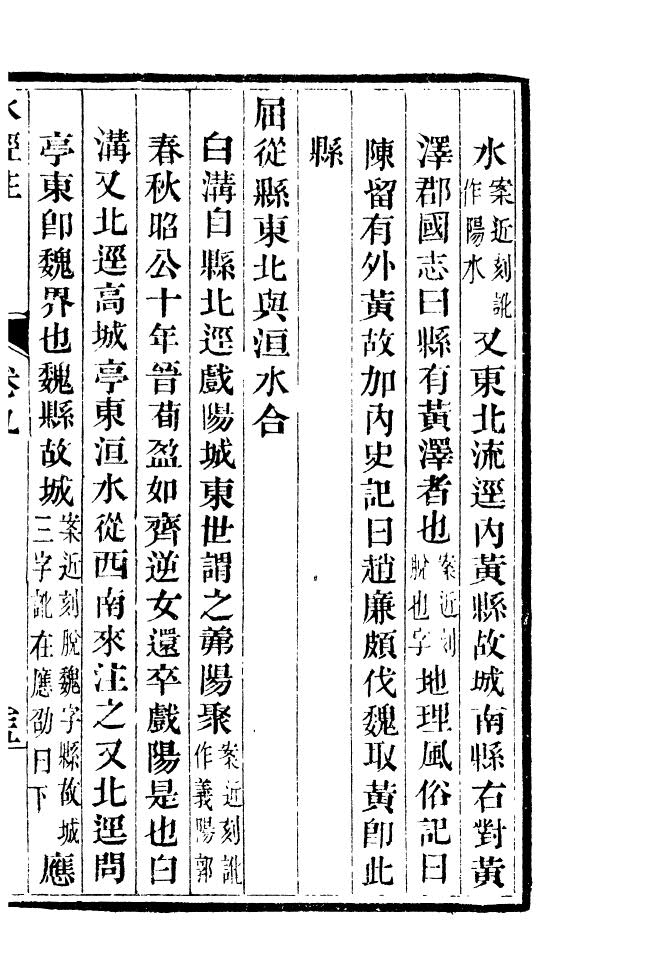 水案近刻訛作陽水又東北流逕內黃縣故城南縣右對黃
澤郡國志曰縣有黃澤者也案近刻脫也字地理風俗記曰
陳留有外黃故加內史記曰趙廉頗伐魏取黃卽此
縣
屈從縣東北與洹水合
白溝自縣北逕戲陽城東世謂之羛陽聚案近刻訛作義陽郭
春秋昭公十年晉荀盈如齊逆女還卒戲陽是也白
溝又北逕高城亭東洹水從西南來注之又北逕問
亭東卽魏界也魏縣故城案近刻脫魏字縣故城三字訛在應劭曰下應
水經注 卷九